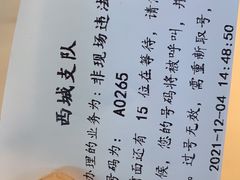 西城支队
办理的业务为：非现场违法
号码为：A0265
面还有 15 位在等待，请
候，您的号码将被呼叫，
。过号无效，需重新取号，
2021-12-04 14:48:50